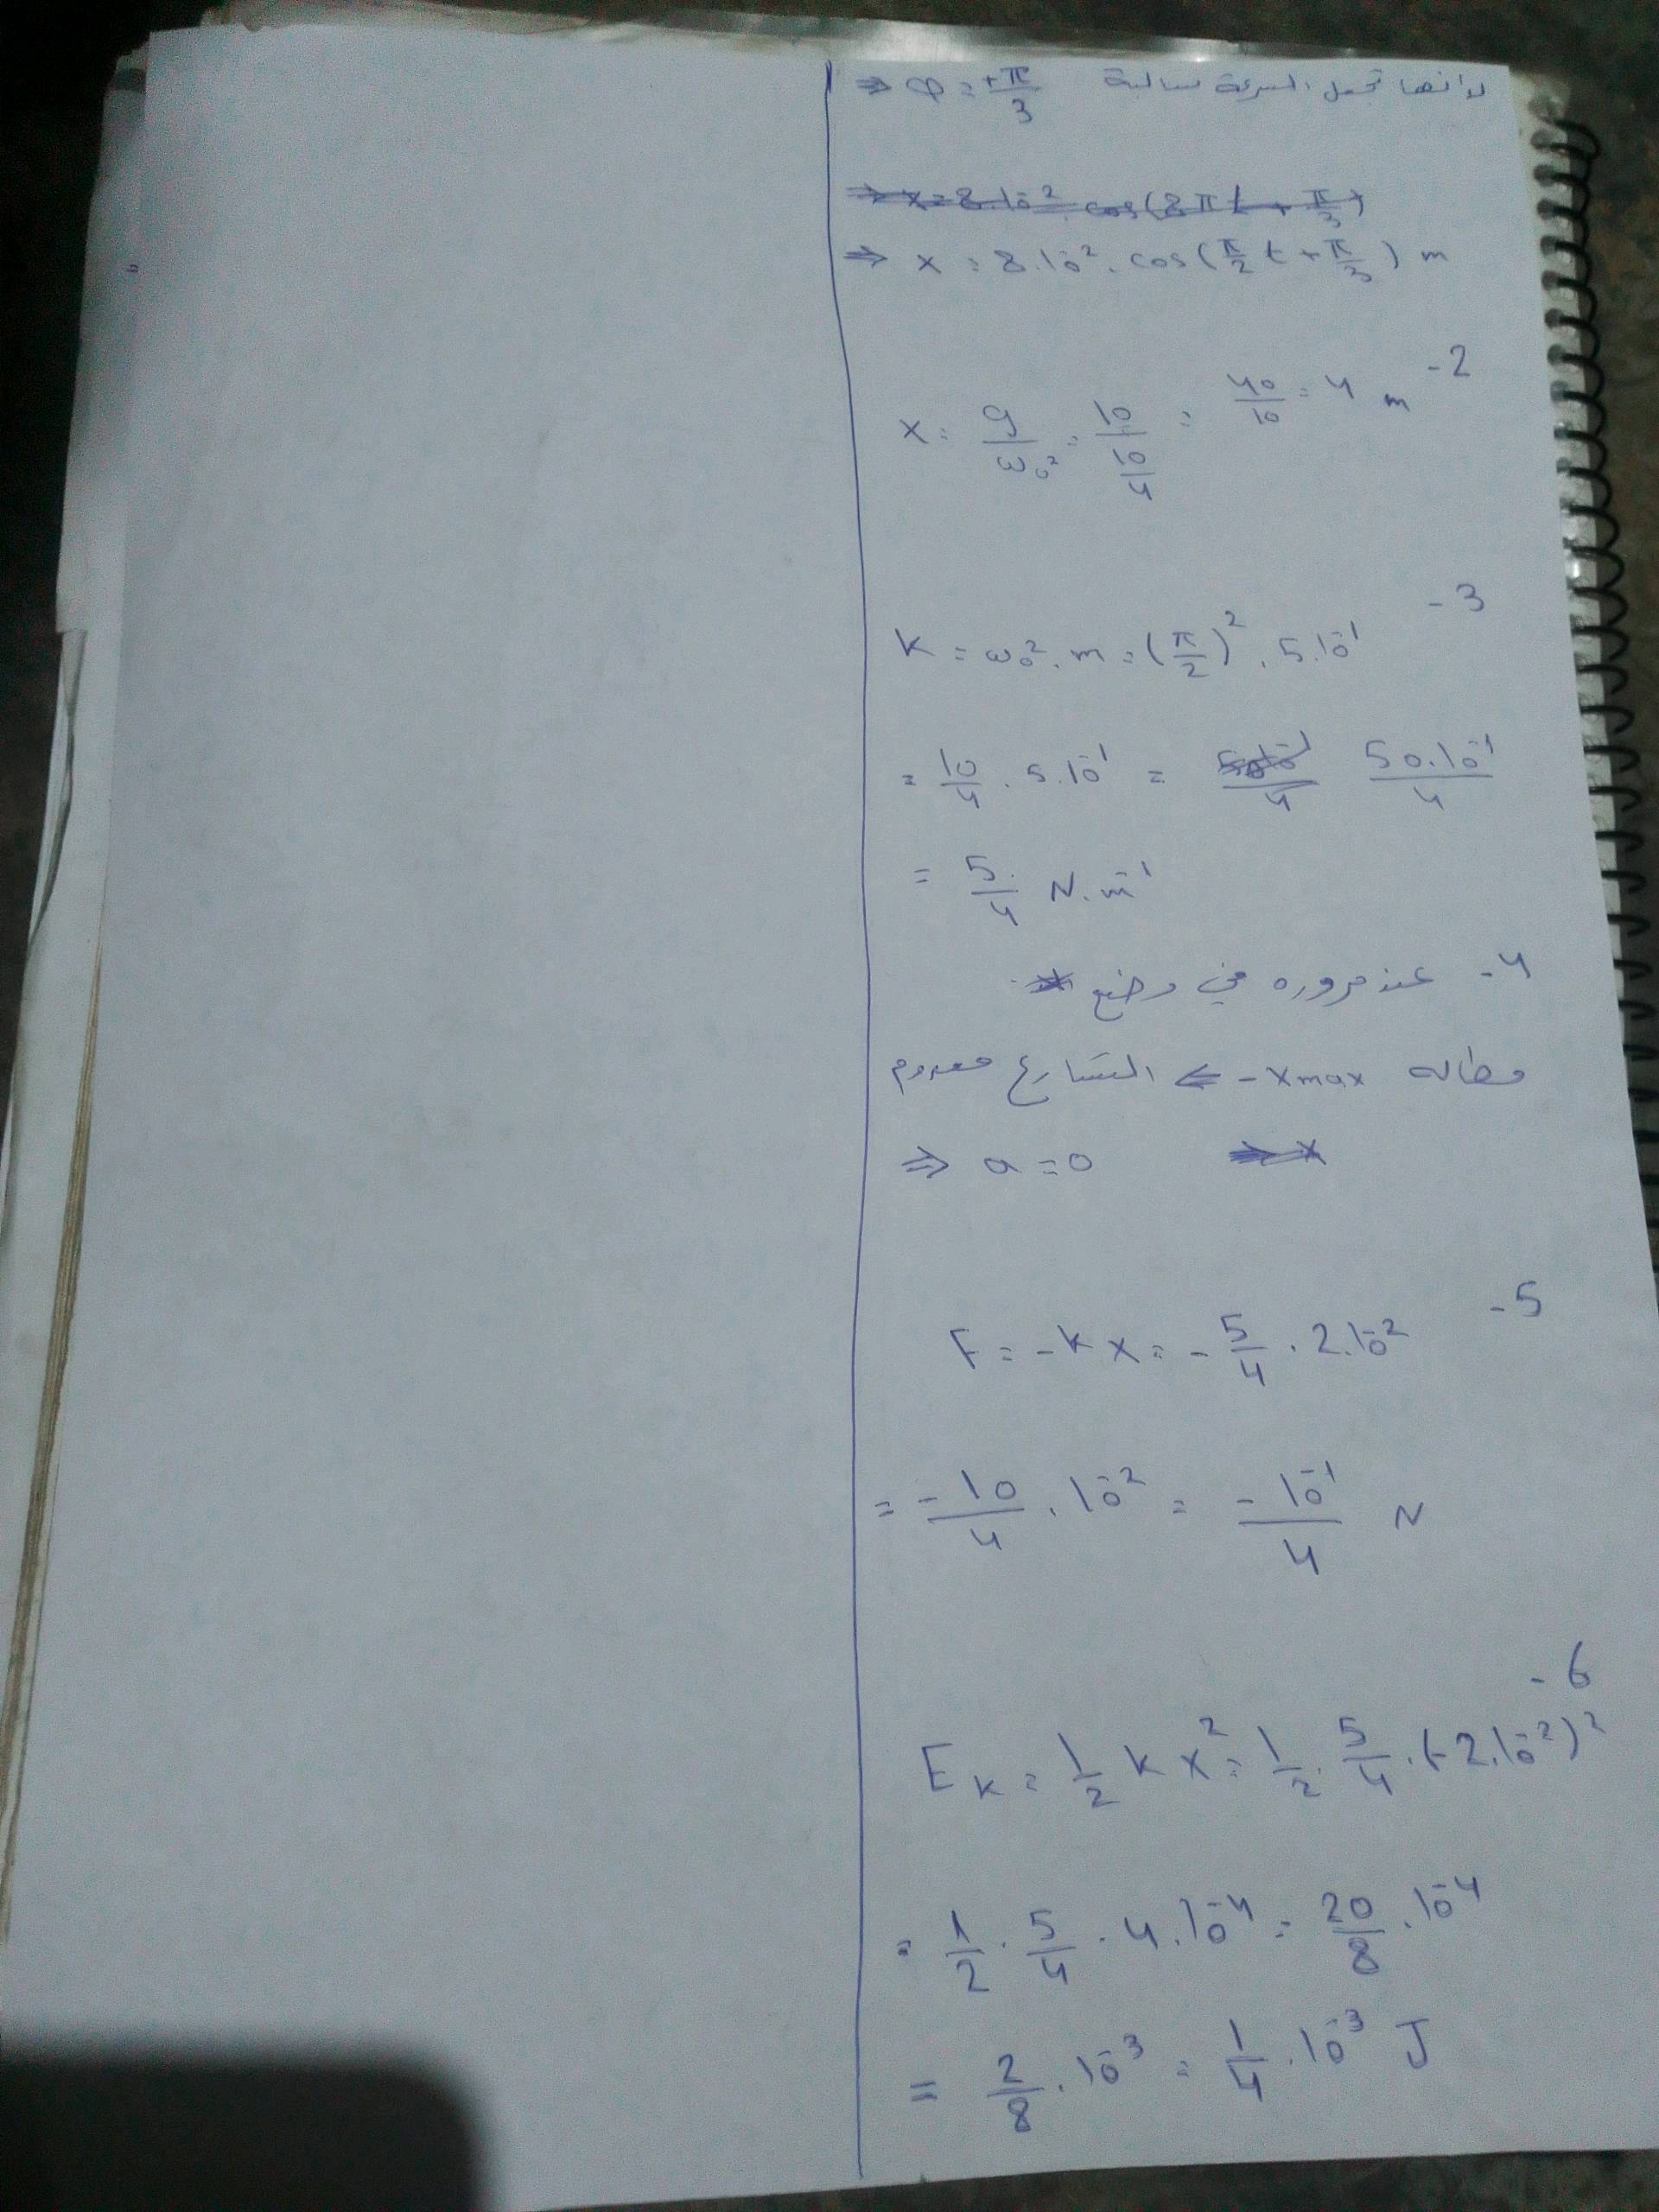 ⇒ φ = +π/3 لأنها تجعل السرعة سالبة
⇒ x = 8.10⁻² . cos(π/2 t + π/3) m
-2
x = g/ω₀² = 10/(10/4) = 40/10 = 4 m
-3
K = ω₀² . m = (π/2)² . 5.10⁻¹
= 10/4 . 5.10⁻¹ = 50.10⁻¹/4
= 5/4 N.m⁻¹
-4 عند مروره في وضع
مطاله -Xmax ⇐ التسارع معدوم
⇒ a = 0
-5
F = -K x = -5/4 . 2.10⁻²
= -10/4 . 10⁻² = -10⁻¹/4 N
-6
E_K = 1/2 K x² = 1/2 . 5/4 . (-2.10⁻²)²
= 1/2 . 5/4 . 4.10⁻⁴ = 20/8 . 10⁻⁴
= 2/8 . 10⁻³ = 1/4 . 10⁻³ J